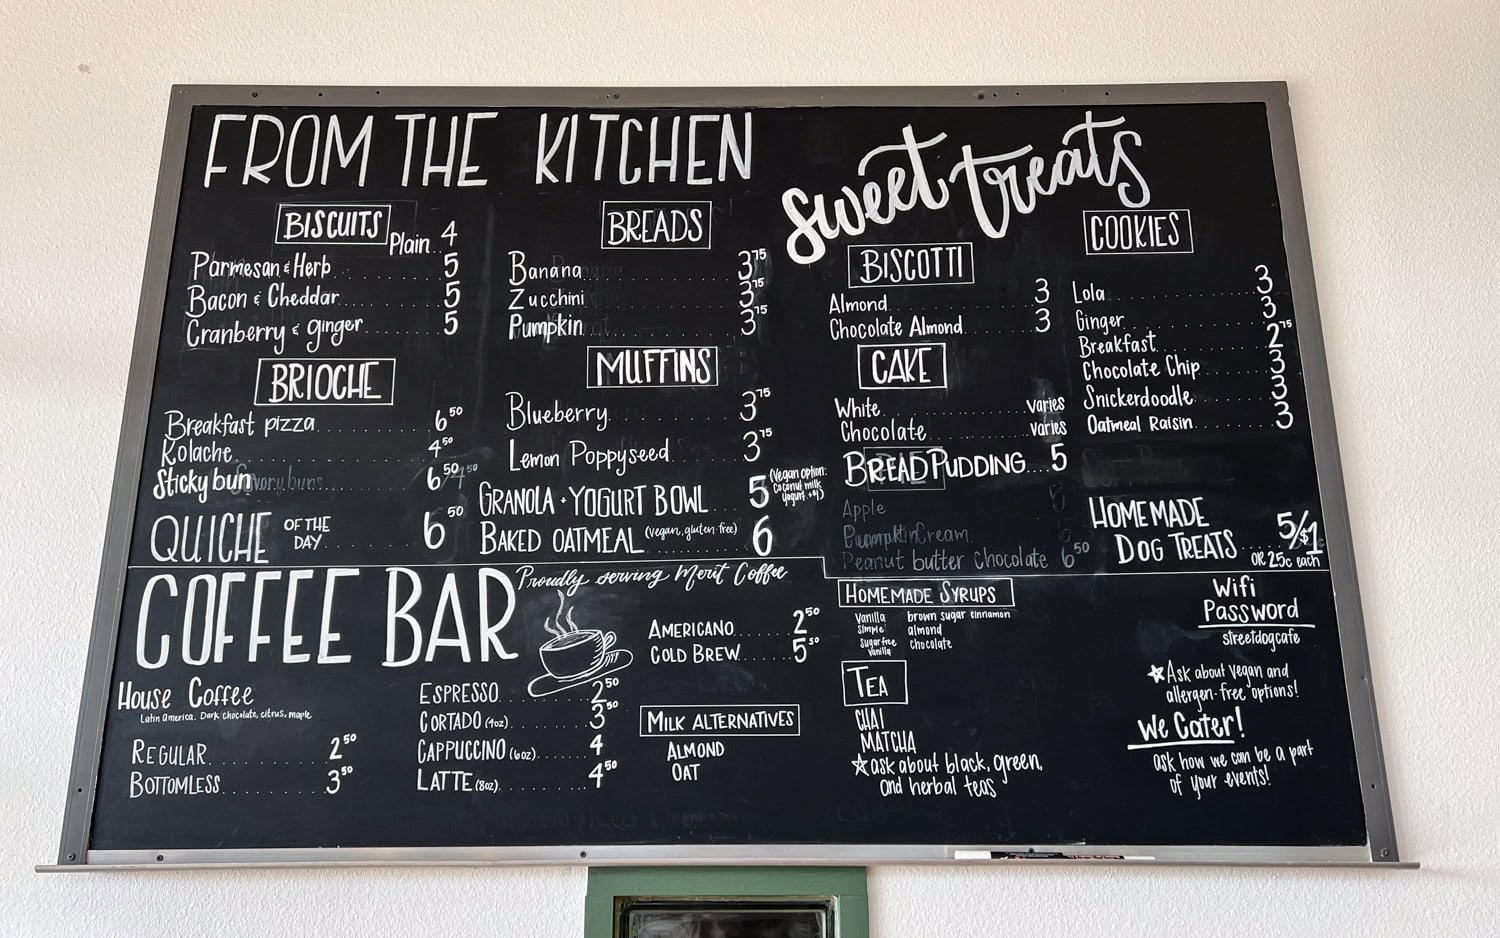 FROM THE KITCHEN
BISCUITS
Plain 4
Parmesan & Herb 5
Bacon & Cheddar 5
Cranberry & ginger 5
BRIOCHE
Breakfast pizza 6 50
Kolache 4 50
Sticky bun 6 50
QUICHE OF THE DAY 6 50
BREADS
Banana 3 75
Zucchini 3 75
Pumpkin 3 75
MUFFINS
Blueberry 3 75
Lemon Poppyseed 3 75
GRANOLA + YOGURT BOWL 5
(Vegan option:
Coconut milk
Yogurt +$1)
BAKED OATMEAL (vegan, gluten-free) 6
sweet treats
BISCOTTI
Almond 3
Chocolate Almond 3
CAKE
White varies
Chocolate varies
BREAD PUDDING 5
Apple 6
Cream 6
Peanut butter Chocolate 6 50
COOKIES
Lola 3
Ginger 3
Breakfast 2 75
Chocolate Chip 3
Snickerdoodle 3
Oatmeal Raisin 3
HOMEMADE
DOG TREATS 5/$1
OR 25¢ each
COFFEE BAR
Proudly serving Merit Coffee
House Coffee
Latin america. Dark chocolate, citrus, maple
REGULAR 2 50
BOTTOMLESS 3 50
ESPRESSO 2 50
CORTADO (4oz) 3 50
CAPPUCCINO (6oz) 4
LATTE (8oz) 4 50
AMERICANO 2 50
COLD BREW 5 50
MILK ALTERNATIVES
ALMOND
OAT
HOMEMADE SYRUPS
Vanilla
Simple
Sugar free
Vanilla
brown sugar cinnamon
almond
chocolate
TEA
CHAI
MATCHA
☆ask about black, green,
and herbal teas
Wifi
Password
streetdogcafe
★Ask about vegan and
allergen-free options!
We Cater!
ask how we can be a part
of your events!